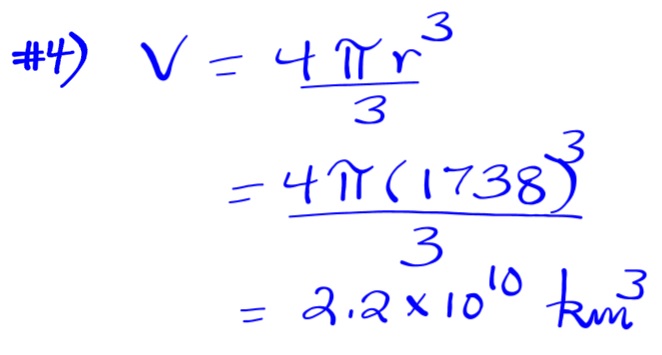 #4) V = 4πr³/3
= 4π(1738)³/3
= 2.2 × 10¹⁰ km³